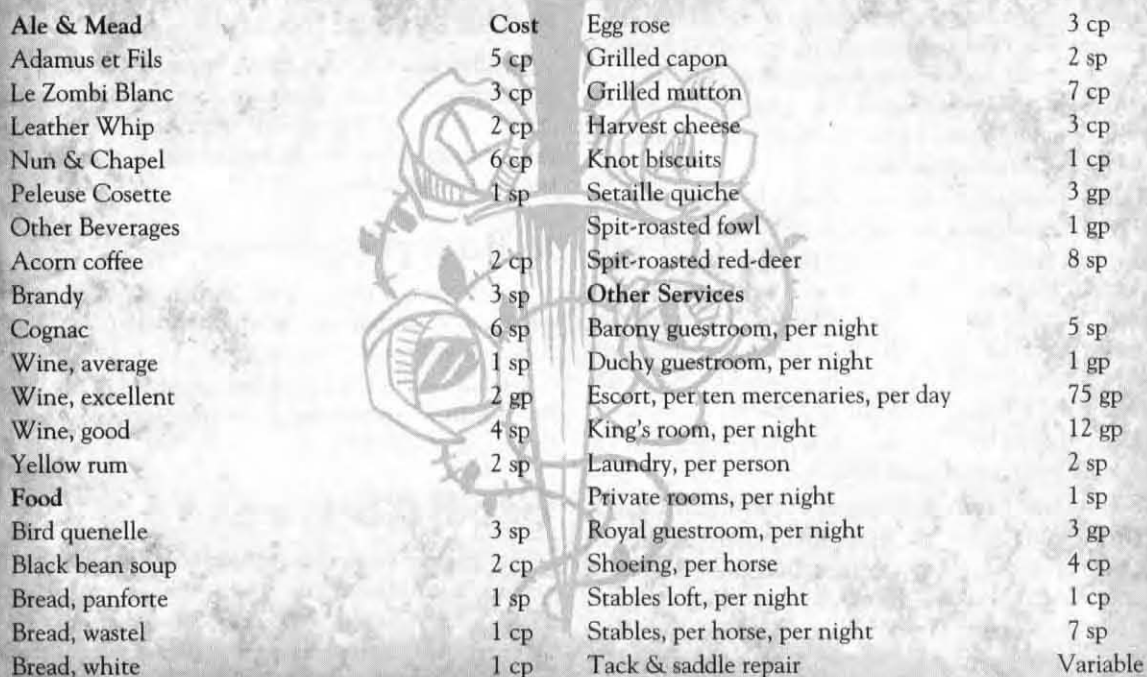 Ale & Mead Cost
Adamus et Fils 5 cp
Le Zombi Blanc 3 cp
Leather Whip 2 cp
Nun & Chapel 6 cp
Peleuse Cosette 1 sp
Other Beverages
Acorn coffee 2 cp
Brandy 3 sp
Cognac 6 sp
Wine, average 1 sp
Wine, excellent 2 gp
Wine, good 4 sp
Yellow rum 2 sp
Food
Bird quenelle 3 sp
Black bean soup 2 cp
Bread, panforte 1 sp
Bread, wastel 1 cp
Bread, white 1 cp
Egg rose 3 cp
Grilled capon 2 sp
Grilled mutton 7 cp
Harvest cheese 3 cp
Knot biscuits 1 cp
Setaille quiche 3 gp
Spit-roasted fowl 1 gp
Spit-roasted red-deer 8 sp
Other Services
Barony guestroom, per night 5 sp
Duchy guestroom, per night 1 gp
Escort, per ten mercenaries, per day 75 gp
King's room, per night 12 gp
Laundry, per person 2 sp
Private rooms, per night 1 sp
Royal guestroom, per night 3 gp
Shoeing, per horse 4 cp
Stables loft, per night 1 cp
Stables, per horse, per night 7 sp
Tack & saddle repair Variable